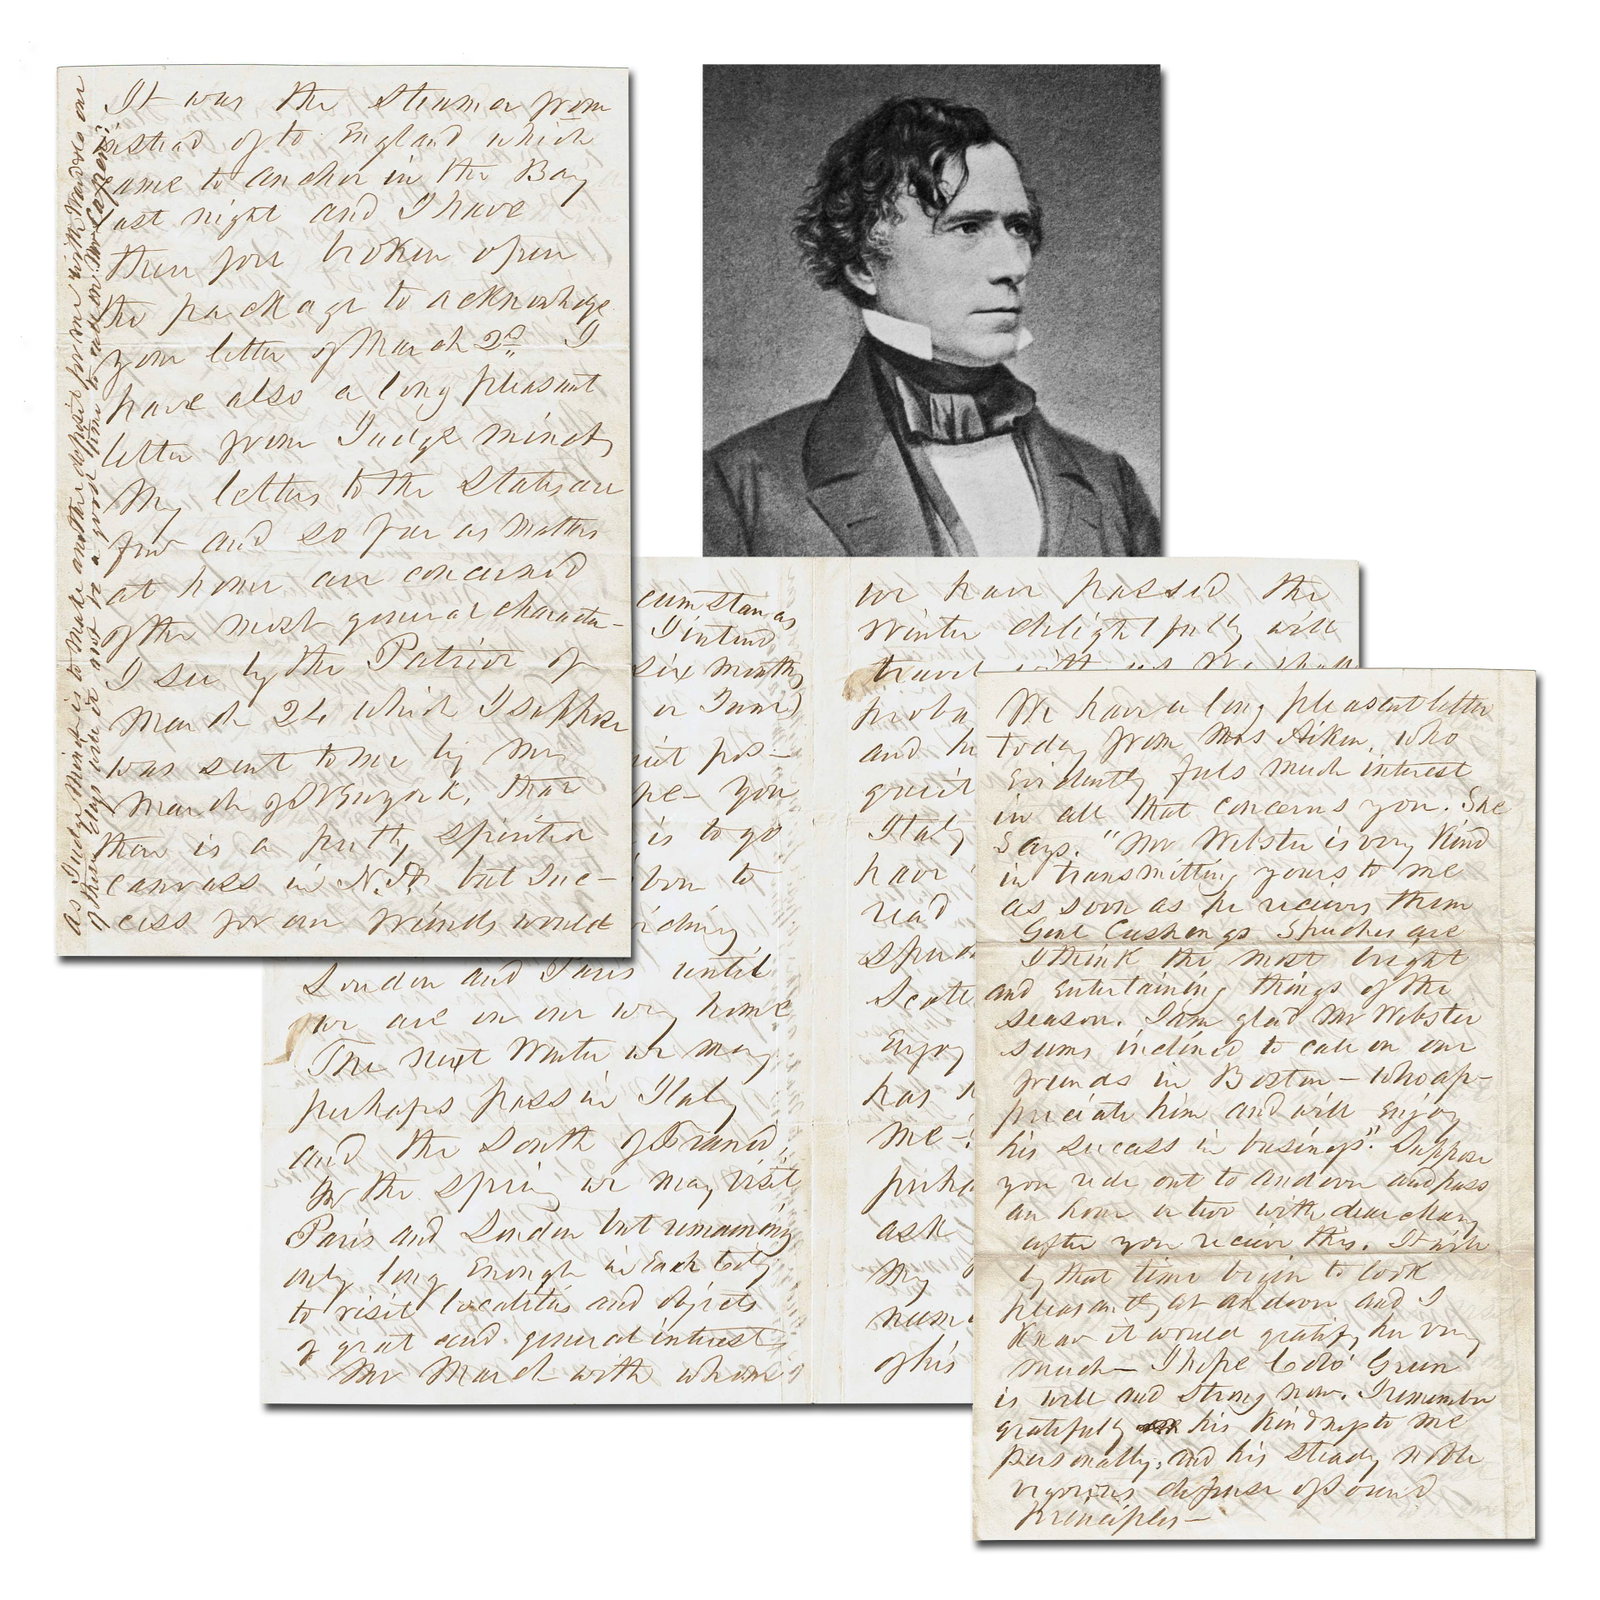 It was the steamer from
instead of to England which
came to anchor in the Bay
last night and I have
then for broken open
the package to acknowledge
your letter of March 2d. I
have also a long pleasant
letter from Judge Minot,
My letters to the States are
few and so far as matters
at home are concerned
of the most general character-
I see by the Patriot of
March 24 which I suppose
was sent to me by Mr
March of N York, that
there is a pretty spirited
canvass in N.H. but suc-
cess for our friends would
as Judge Minot is to make another deposit for me with
of this. Mrs. not be a good time to call on Mr
cumstances
I intend
six months
or June)
pos-
pe- You
is to go
bon to
London and Paris until
we are on our way home
The next Winter we may
perhaps pass in Italy
and the South of France,
In the spring we may visit
Paris and London but remaining
only long enough in each City
to visit localities and objects
of great and general interest,
Mr March with whom
we have passed the
Winter delightfully will
travel with us We shall
proba
and
quiet
Italy
have
read
spen
Scott
Enjoy
has
me-
perha
ask
My
num
of his
We have a long pleasant letter
today from Mrs Aiken, who
Evidently feels much interest
in all that concerns you. She
Says. "Mr Webster is very Kind
in transmitting yours to me
as soon as he recieves them
Genl Cushings Speeches are
I think the most bright
and Entertaining things of the
season. I am glad Mr Webster
seems inclined to call on our
friends in Boston - who ap-
preciate him and will Enjoy
his success in business". Suppose
you ride out to Andover and pass
an hour or two with dear Mary
after you recieve this. It will
by that time begin to look
pleasantly at Andover and I
Know it would gratify her very
much - I hope Colo' Green
is well and strong now. I remember
gratefully his Kindness to me
personally, and his steady noble
vigorous defense of sound
Principles-